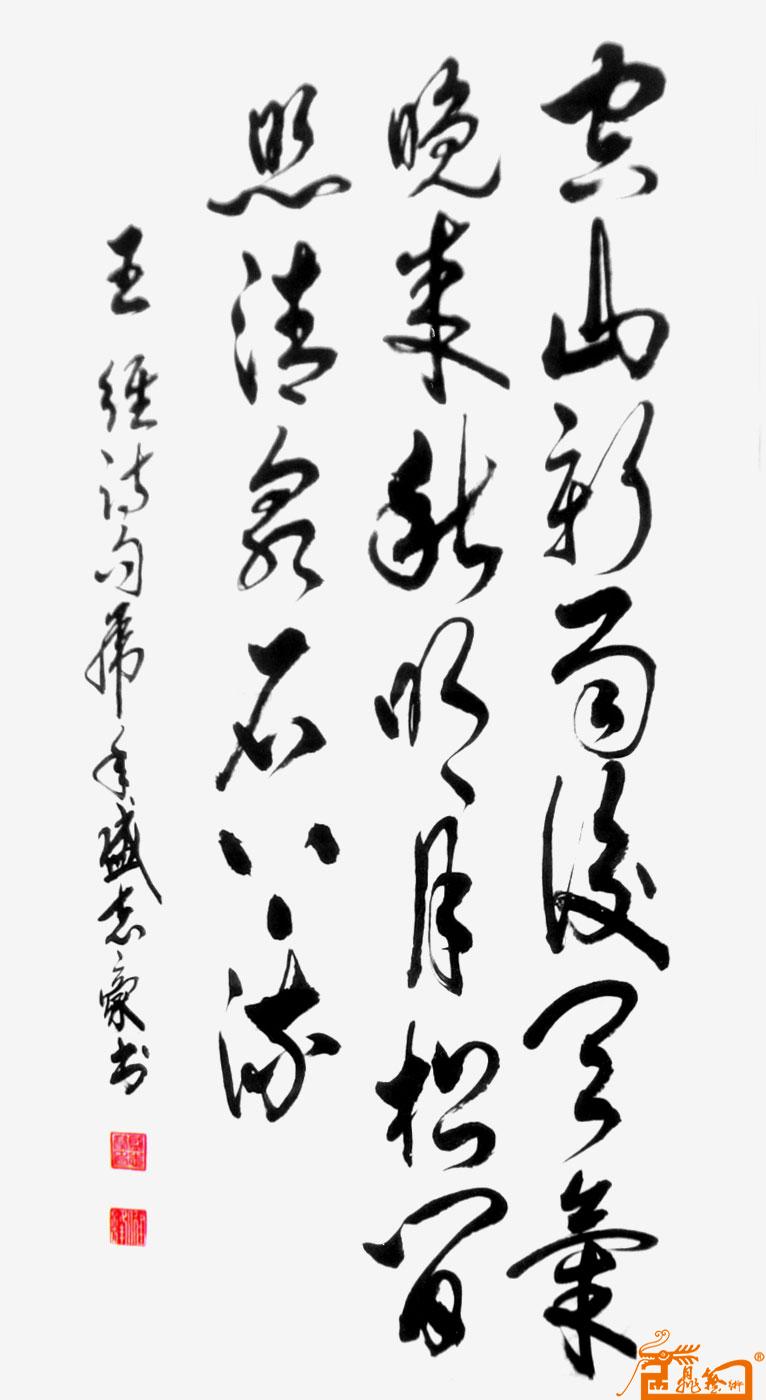 空山新雨後天氣
晚来秋明月松間
照清泉石上流
王維诗句虎年盛志豪书